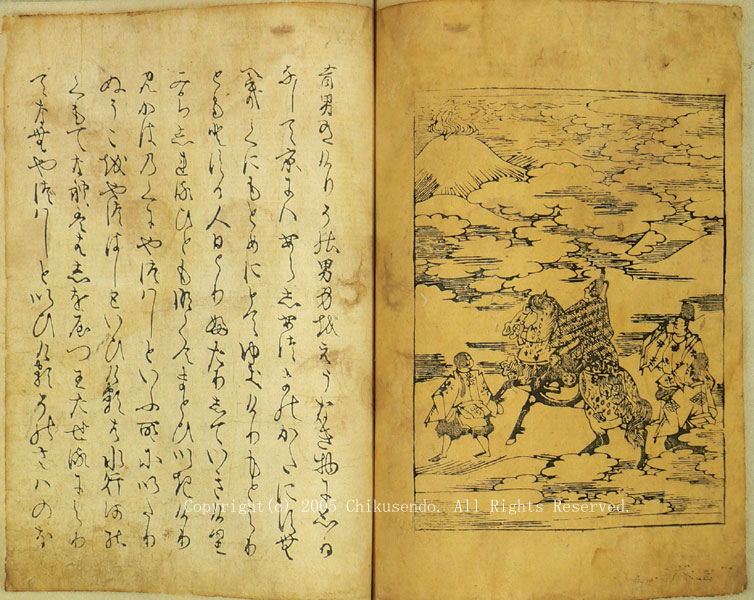 昔男有けりその男身をえうなき物に思ひ
なして京にはあらしあつまのかたにすむ
へきくにもとめにとてゆきけりもとより
ともとする人ひとりふたりしていきけり
みちしれるひともなくてまとひいきけり
みかはのくにやつはしといふ所にいたり
ぬそこをやつはしといひけるは水行河の
くもてなれはゝしをやつわたせるにより
てなむやつはしといひけるそのさはのほ
Copyright(c) 2005 Chikusendo. All Rights Reserved.